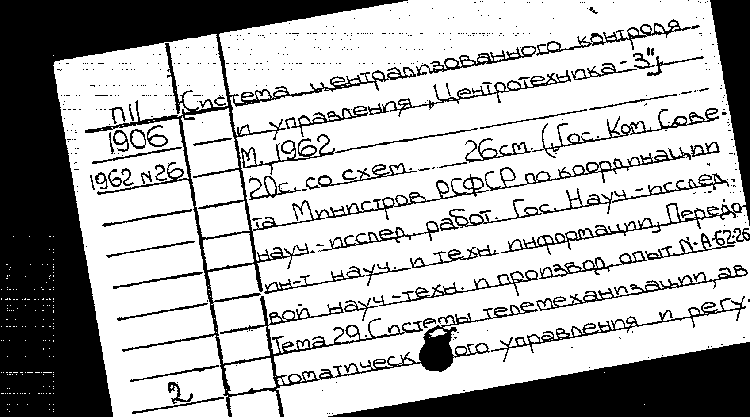 П11
1906
1962 N26
Система централизованного контроля
и управления „Центротехника-3";
М., 1962
20с. со схем. 26см. (Гос. Ком. Сове-
та Министров РСФСР по координации
науч.-исслед. работ. Гос. Науч.-исслед.
ин-т науч. и техн. информации, Передо-
вой науч-техн. и производ. опыт. N-А-62-26
Тема 29. Системы телемеханизации, ав
томатическ ого управления и регу-
2